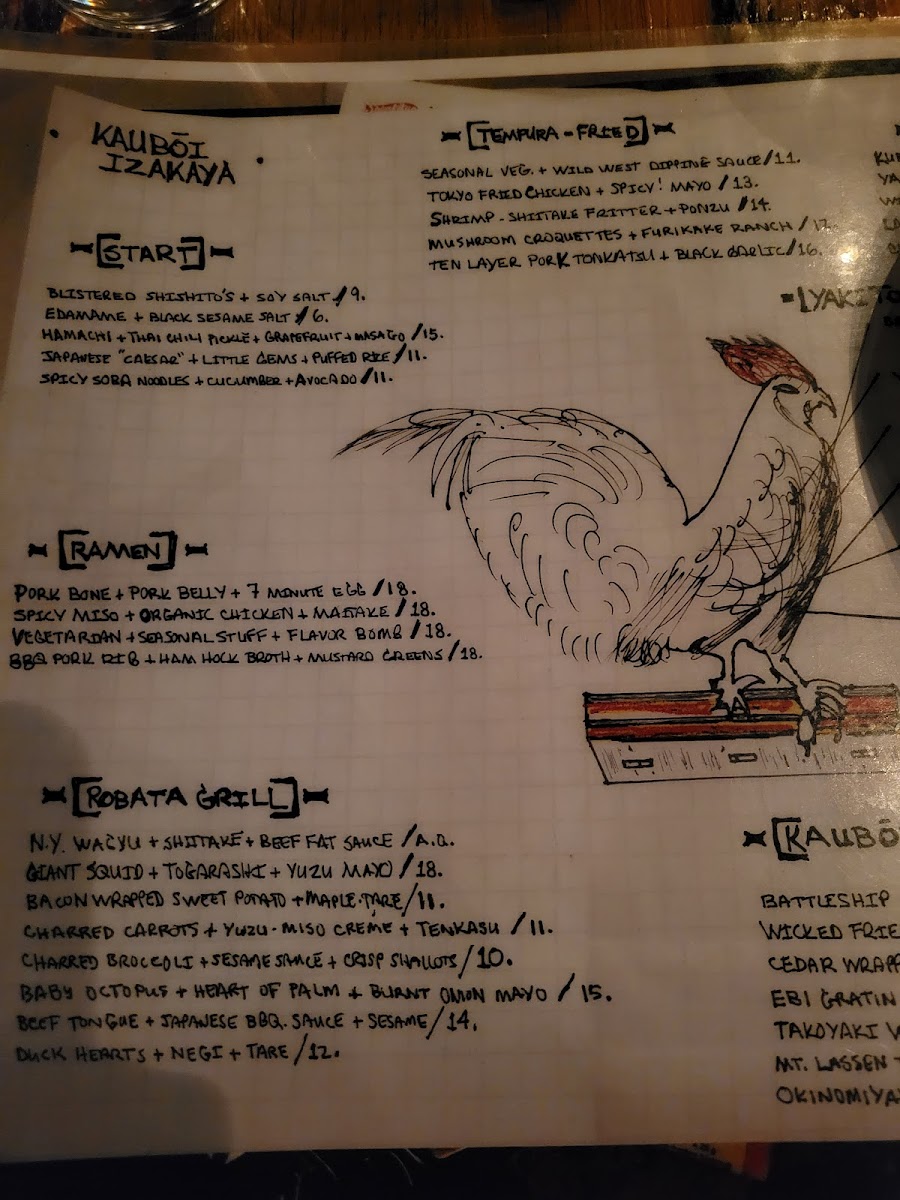 KAUBŌI
IZAKAYA
[START]
BLISTERED SHISHITO'S + SOY SALT / 9.
EDAMAME + BLACK SESAME SALT / 6.
HAMACHI + THAI CHILI PICKLE + GRAPEFRUIT + MASAGO / 15.
JAPANESE "CAESAR" + LITTLE GEMS + PUFFED RICE / 11.
SPICY SOBA NOODLES + CUCUMBER + AVOCADO / 11.
[TEMPURA-FRIED]
SEASONAL VEG. + WILD WEST DIPPING SAUCE / 11.
TOKYO FRIED CHICKEN + SPICY! MAYO / 13.
SHRIMP-SHIITAKE FRITTER + PONZU / 14.
MUSHROOM CROQUETTES + FURIKAKE RANCH /
TEN LAYER PORK TONKATSU + BLACK GARLIC / 16.
[RAMEN]
PORK BONE + PORK BELLY + 7 MINUTE EGG / 18.
SPICY MISO + ORGANIC CHICKEN + MAITAKE / 18.
VEGETARIAN + SEASONAL STUFF + FLAVOR BOMB / 18.
BBQ PORK RIB + HAM HOCK BROTH + MUSTARD GREENS / 18.
[ROBATA GRILL]
N.Y. WAGYU + SHIITAKE + BEEF FAT SAUCE / A.Q.
GIANT SQUID + TOGARASHI + YUZU MAYO / 18.
BACON WRAPPED SWEET POTATO + MAPLE-TARE / 11.
CHARRED CARROTS + YUZU-MISO CREME + TENKASU / 11.
CHARRED BROCCOLI + SESAME SAUCE + CRISP SHALLOTS / 10.
BABY OCTOPUS + HEART OF PALM + BURNT ONION MAYO / 15.
BEEF TONGUE + JAPANESE BBQ. SAUCE + SESAME / 14.
DUCK HEARTS + NEGI + TARE / 12.
[YAKITO
[KAUBŌ
BATTLESHIP
WICKED FRIE
CEDAR WRAPP
EBI GRATIN
TAKOYAKI
MT. LASSEN
OKINOMIYA